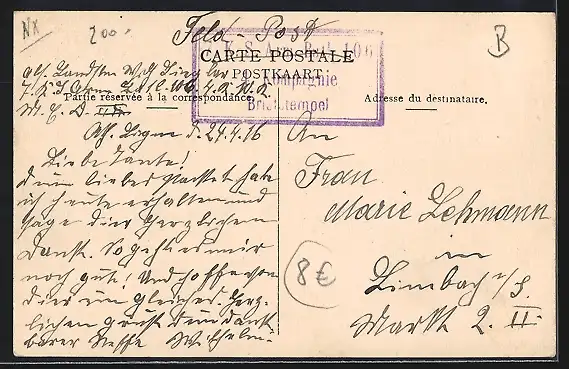 NX
200.
Feld-Post
B
CARTE POSTALE
POSTKAART
K. S. Arm. Bat. 106
Kompagnie
Briefstempel
Partie réservée à la correspondance.
Adresse du destinataire.
d. 24.4.16
Liebe Tante!
Dein liebes Packet habe
ich heute erhalten und
sage dir herzlichen
Dank. So geht es mir
noch gut! Und hoffe von
dir ein gleiches. Herz-
lichen Gruß dein dank-
barer Neffe Wilhelm.
An
Frau
Marie Lehmann
in
Limbach i/S.
Markt 2. II.
8€